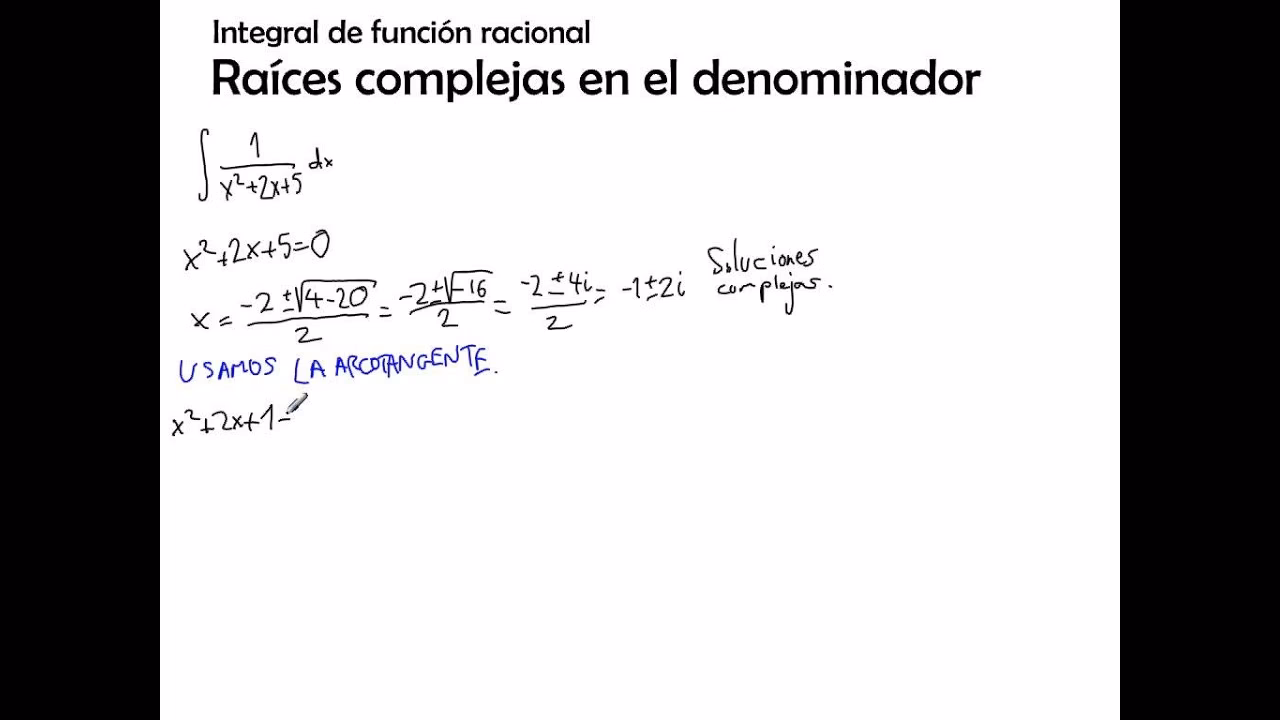 Integral de función racional
Raíces complejas en el denominador
∫ 1/(x²+2x+5) dx
x²+2x+5=0
x = (-2 ±√(4-20))/2 = (-2±√-16)/2 = (-2 ± 4i)/2 = -1±2i Soluciones complejas.
USAMOS LA ARCOTANGENTE.
x²+2x+1=